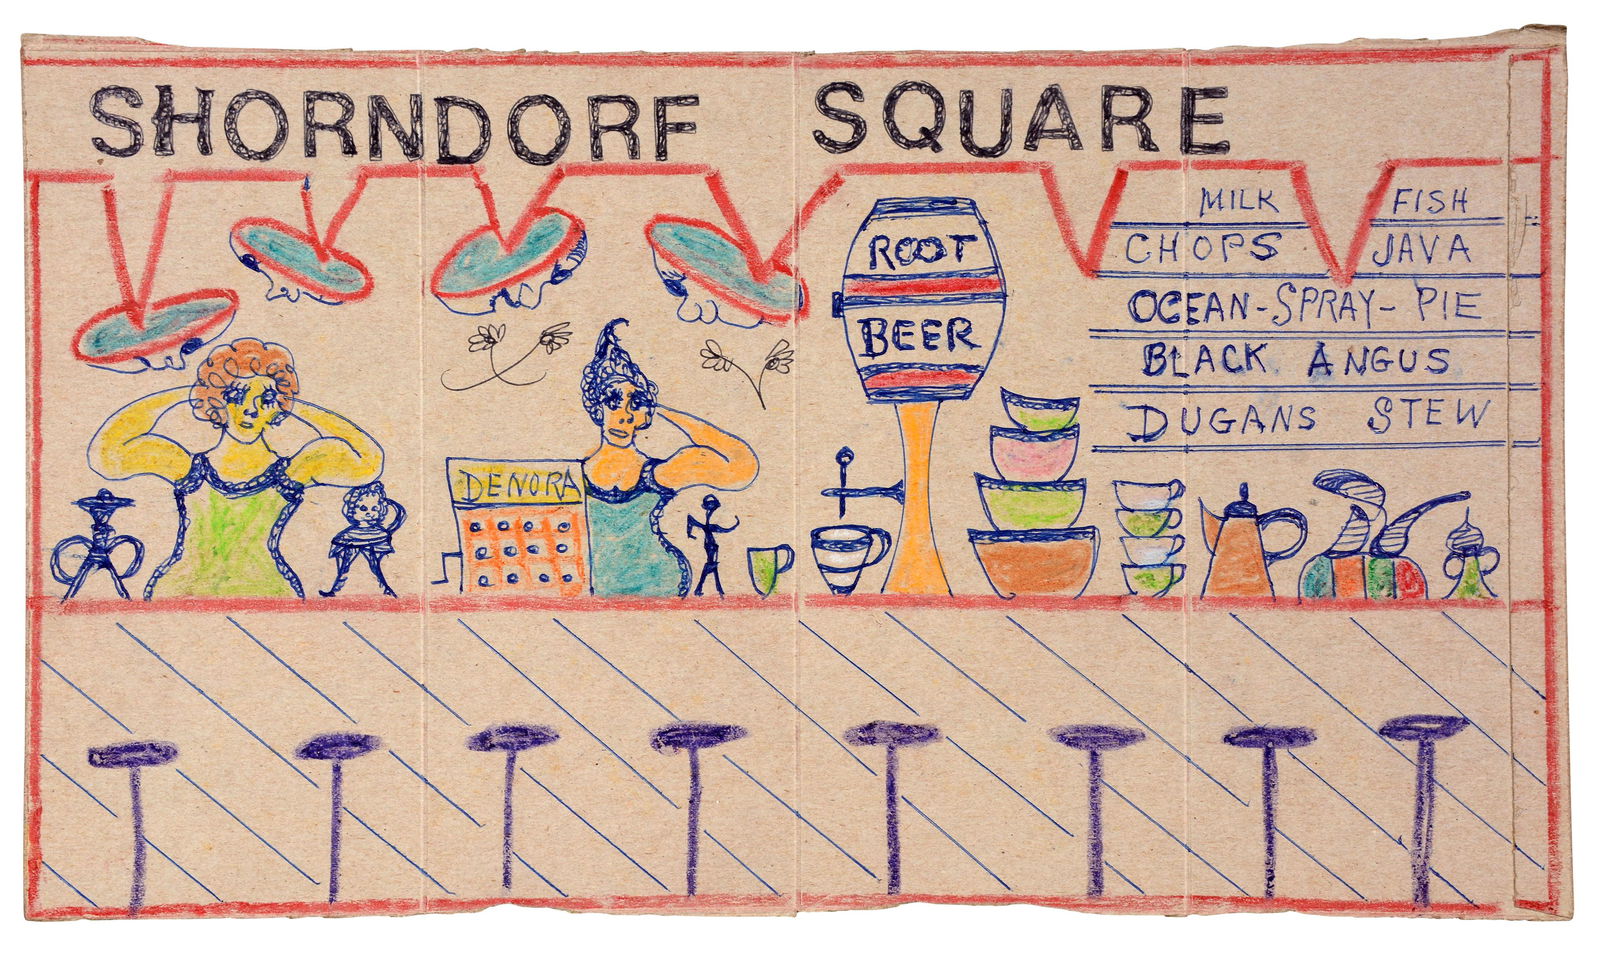 SHORNDORF SQUARE
ROOT
BEER
MILK FISH
CHOPS JAVA
OCEAN-SPRAY-PIE
BLACK ANGUS
DUGANS STEW
DENORA